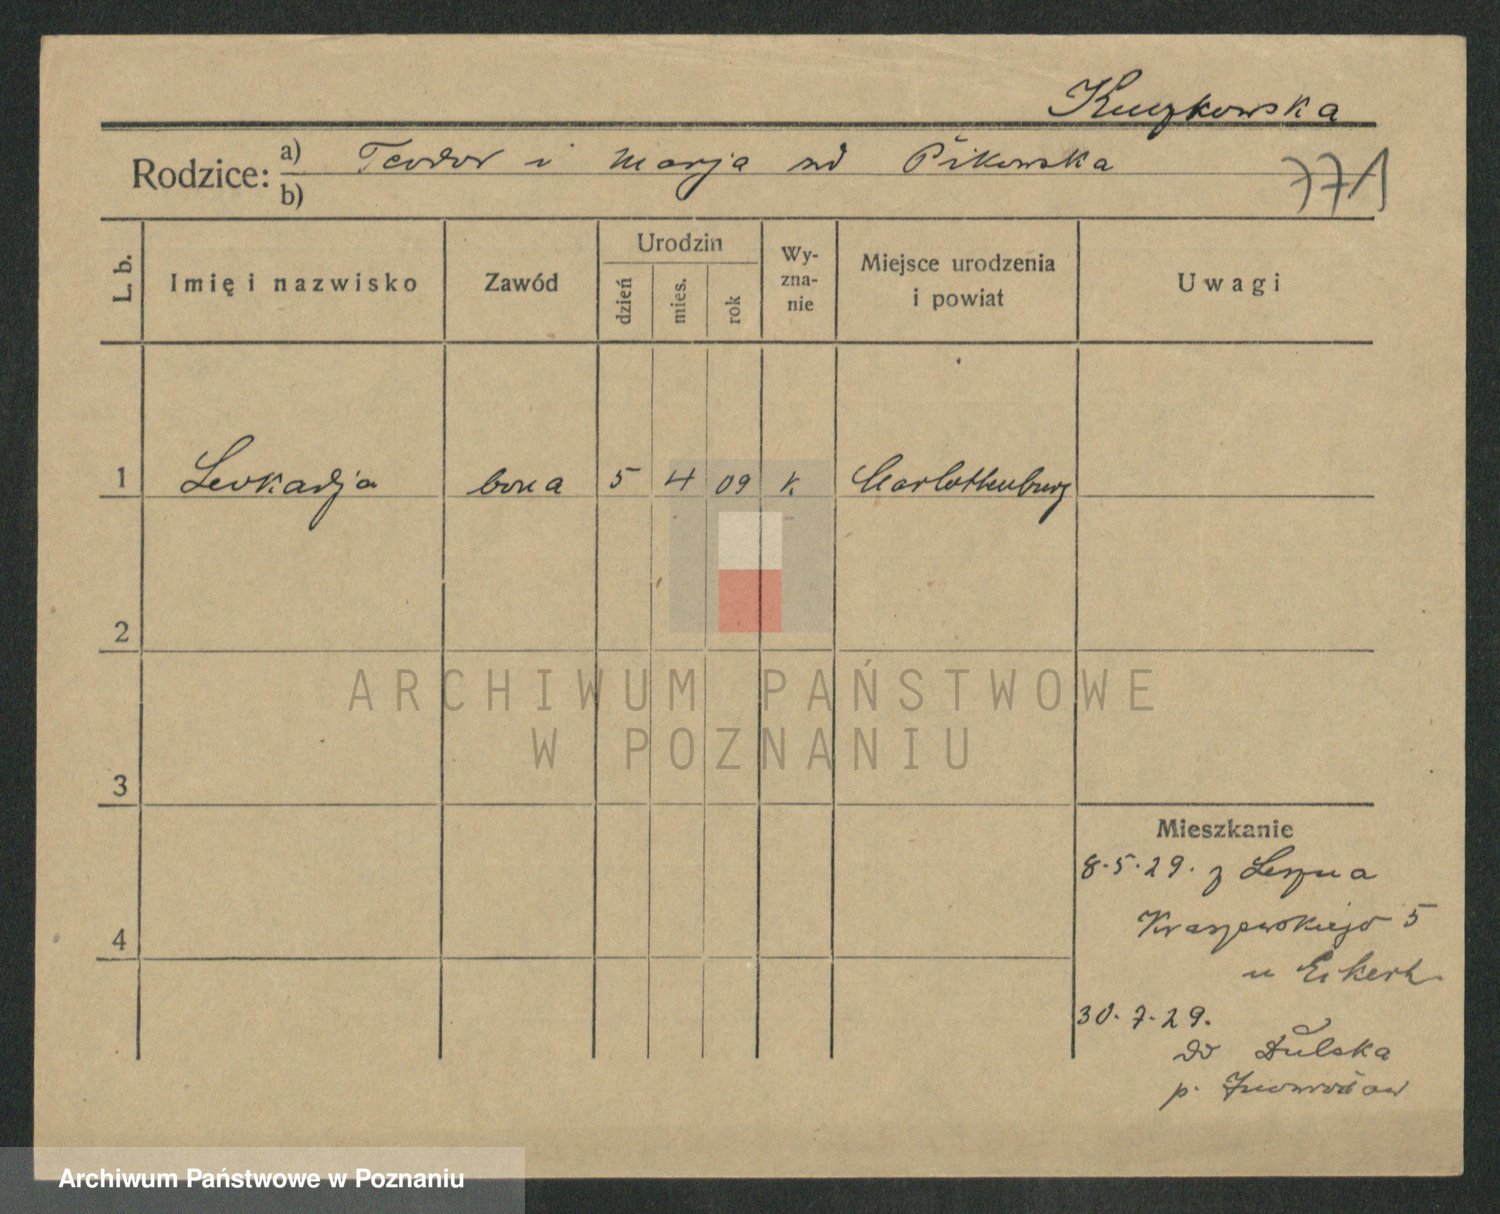 Kuczkowska
Rodzice: a) Teodor i Marja zd Pikowska
b)
771
L. b. Imię i nazwisko Zawód Urodzin dzień mies. rok Wyznanie Miejsce urodzenia i powiat Uwagi
1 Leokadja bona 5 4 09 k Charlottenburg
2
ARCHIWUM PAŃSTWOWE
W POZNANIU
3
Mieszkanie
8.5.29. z Leszna
Kraszewskiego 5
4
u Eikert
30.7.29.
do Dulska
p. Inowrocław
Archiwum Państwowe w Poznaniu